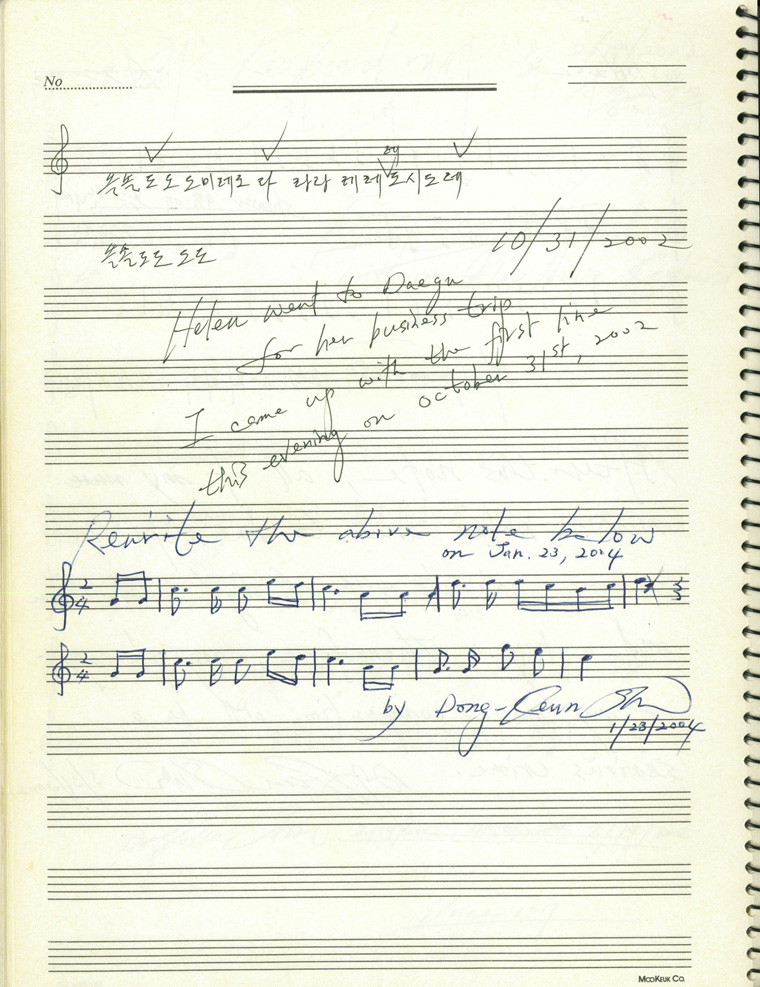 No
솔솔 도도 도미레도 라 라라 레레 도시도레
10/31/2002
솔솔도도 도도
Helen went to Daegu
for her business trip
I came up with the first line
this evening on October 31st, 2002
Rewrite the above note below
on Jan. 23, 2004
2 4
2 4
by Dong-Keun Shin
1/23/2004
MOOKEUK CO.